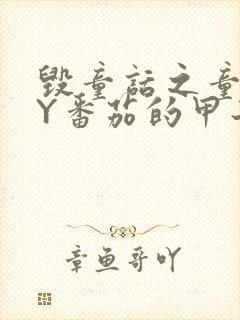 毁童话之童
Y番茄的甲
章鱼哥吖